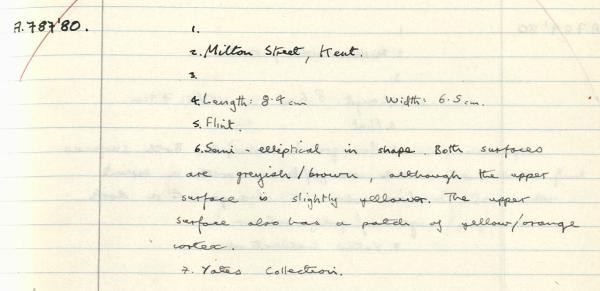 A.787'80.
1.
2. Milton Street, Kent.
3.
4. Length: 8.4cm Width: 6.5cm.
5. Flint.
6. Semi-elliptical in shape. Both surfaces
are greyish/brown, although the upper
surface is slightly yellower. The upper
surface also has a patch of yellow/orange
cortex.
7. Yates Collection.